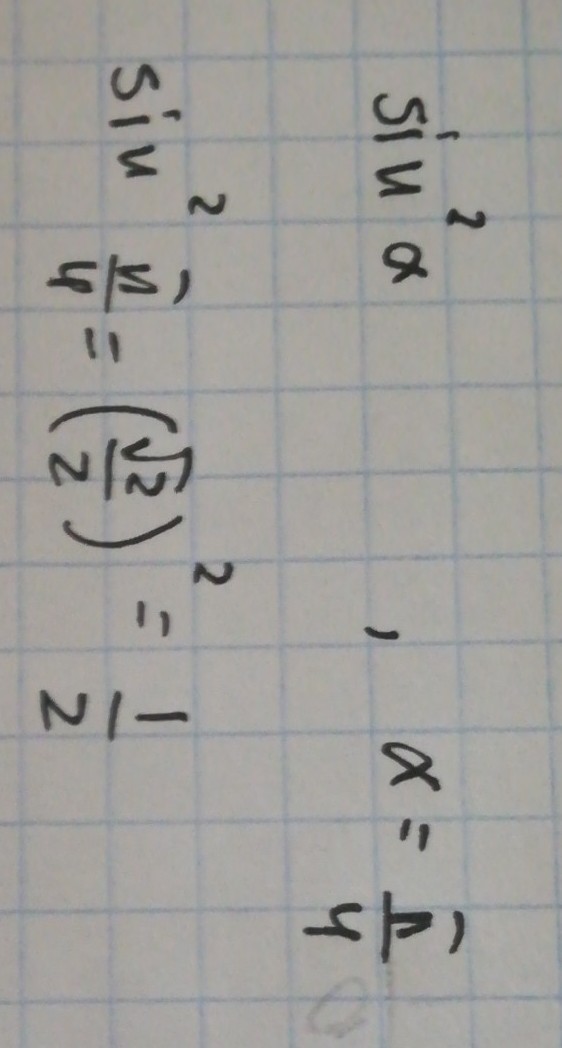 sin² α , α = π/4
sin² π/4 = (√2/2)² = 1/2